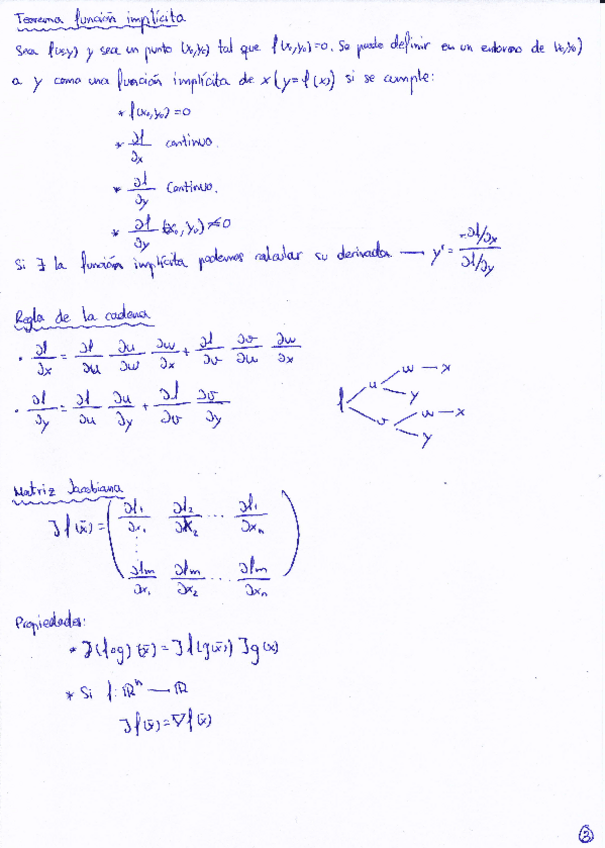 Teorema función implícita
Sea f(x,y) y sea un punto (x₀,y₀) tal que f(x₀,y₀)=0. Se puede definir en un entorno de (x₀,y₀)
a y como una función implícita de x (y=f(x)) si se cumple:
* f(x₀,y₀)=0
* ∂f/∂x continuo.
* ∂f/∂y continuo.
* ∂f/∂y (x₀,y₀)≠0
Si ∃ la función implícita podemos calcular su derivada → y' = -∂f/∂x / ∂f/∂y
Regla de la cadena
· ∂f/∂x = ∂f/∂u ∂u/∂w ∂w/∂x + ∂f/∂v ∂v/∂u ∂w/∂x
· ∂f/∂y = ∂f/∂u ∂u/∂y + ∂f/∂v ∂v/∂y
f u w — x
y
v w — x
y
Matriz Jacobiana
Jf(x̄) = ( ∂f₁/∂x₁ ∂f₂/∂x₂ ... ∂f₁/∂xₙ
⋮
∂fm/∂x₁ ∂fm/∂x₂ ... ∂fm/∂xₙ )
Propiedades:
* J(fog)(x̄)=Jf(g(x̄)) Jg(x)
* Si f: ℝⁿ — ℝ
Jf(x̄)=∇f(x̄)
3